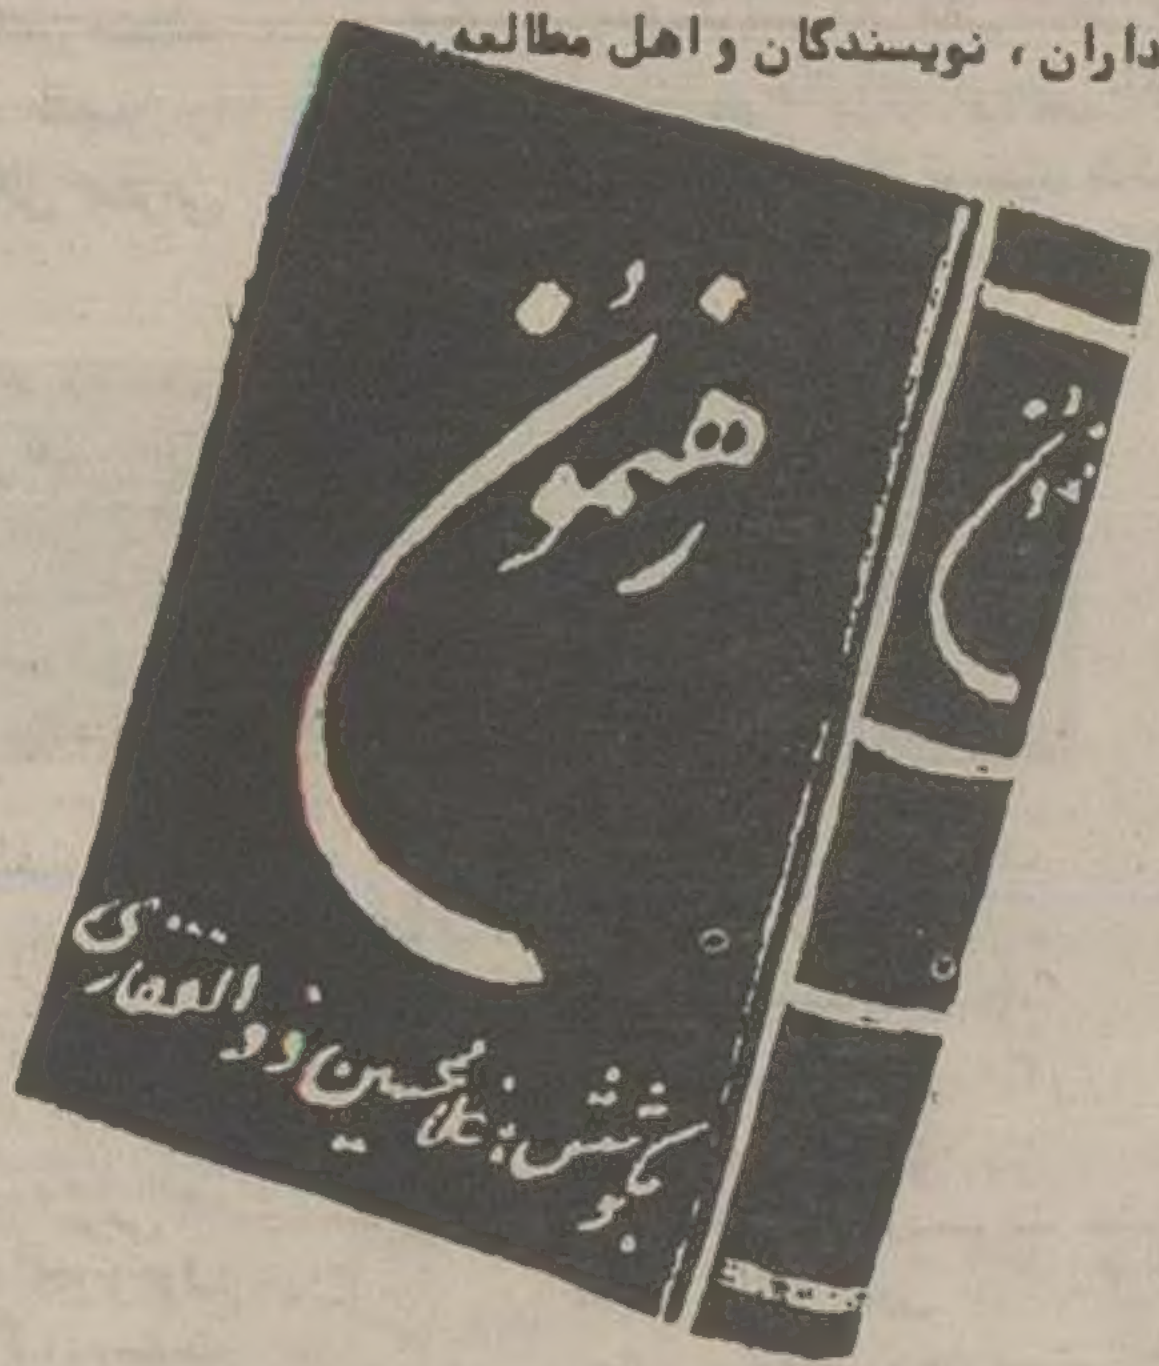 داران ، نویسندگان و اهل مطالعه
رهنمُون
بکوشش : غلامحسین ذوالفقاری
رهنمُون